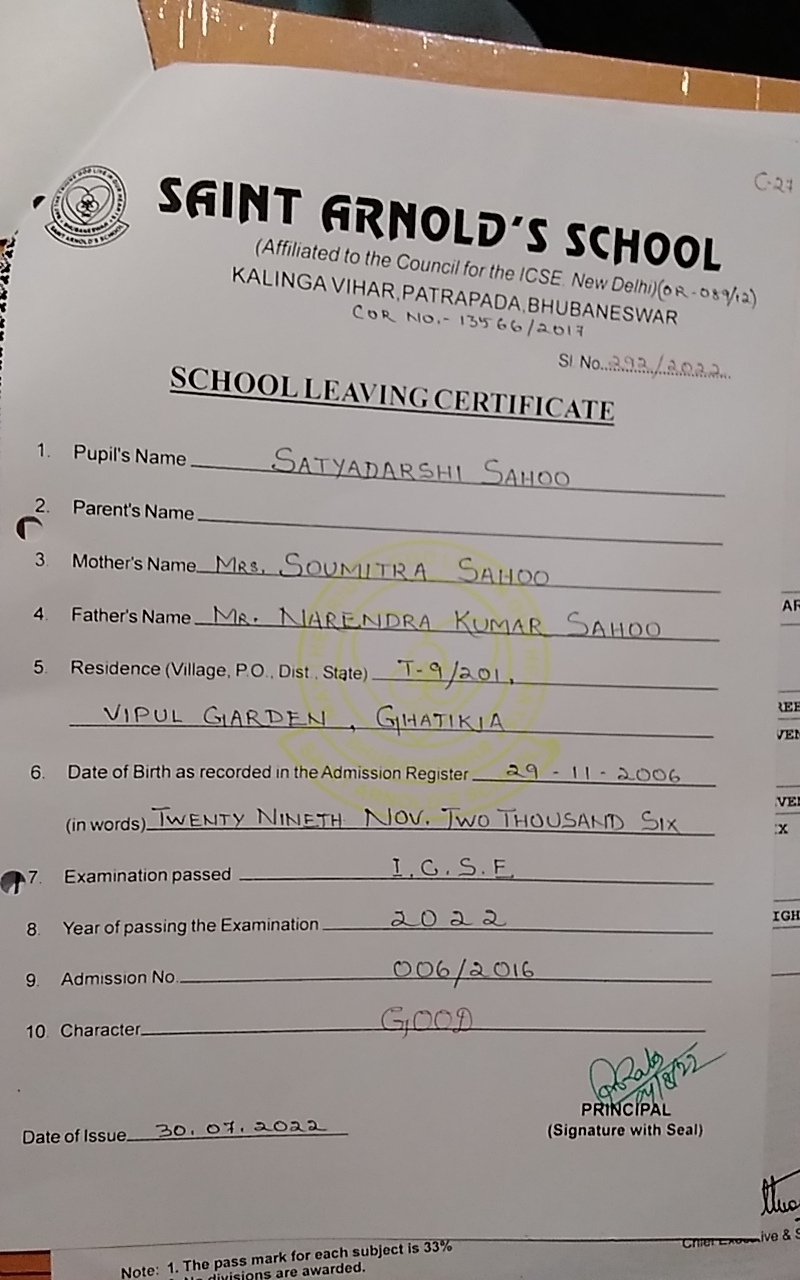 C-27
SAINT ARNOLD'S SCHOOL
(Affiliated to the Council for the ICSE. New Delhi)(OR-089/12)
KALINGA VIHAR,PATRAPADA,BHUBANESWAR
COR NO.- 13566/2017
Sl. No. 292/2022
SCHOOL LEAVING CERTIFICATE
1. Pupil's Name SATYADARSHI SAHOO
2. Parent's Name
3. Mother's Name MRS. SOUMITRA SAHOO
4. Father's Name MR. NARENDRA KUMAR SAHOO
5. Residence (Village, P.O., Dist., State) T-9/201,
VIPUL GARDEN, GHATIKIA
6. Date of Birth as recorded in the Admission Register 29-11-2006
(in words) TWENTY NINETH NOV. TWO THOUSAND SIX
7. Examination passed I.C.S.E.
8. Year of passing the Examination 2022
9. Admission No 006/2016
10. Character GOOD
PRINCIPAL
Date of Issue 30.07.2022
(Signature with Seal)
Note: 1. The pass mark for each subject is 33%
divisions are awarded.